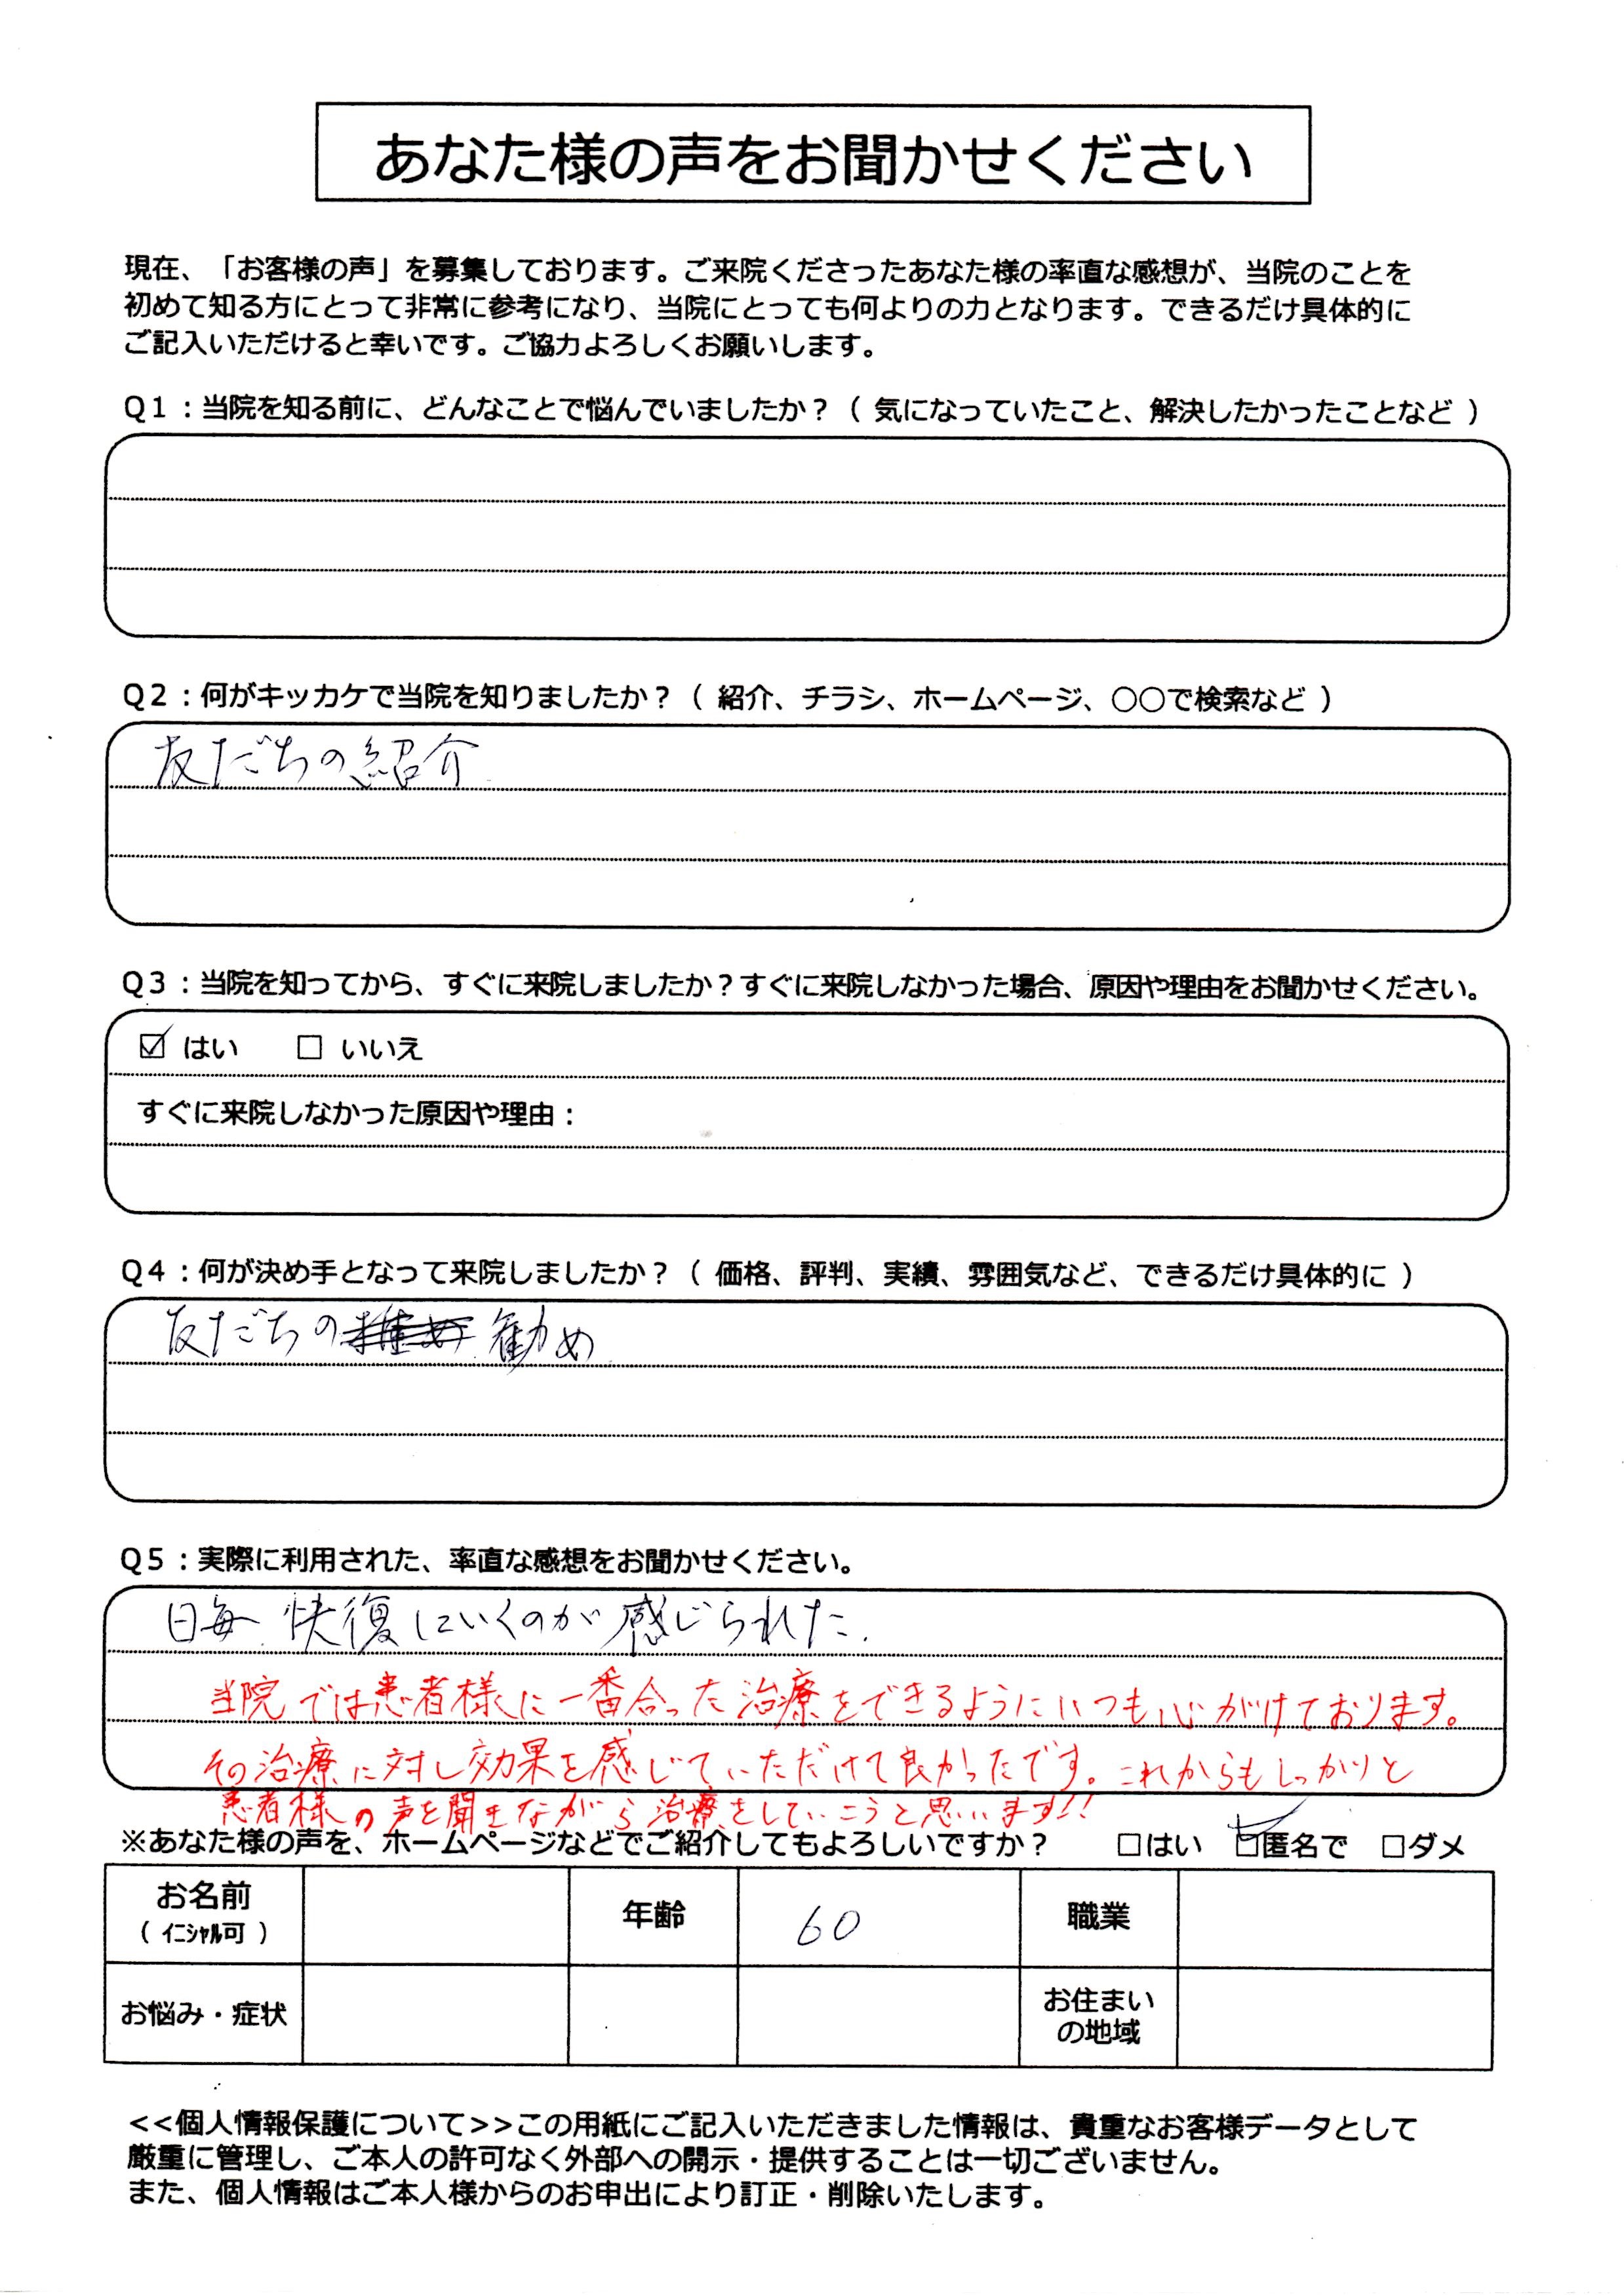 あなた様の声をお聞かせください
現在、「お客様の声」を募集しております。ご来院くださったあなた様の率直な感想が、当院のことを
初めて知る方にとって非常に参考になり、当院にとっても何よりの力となります。できるだけ具体的に
ご記入いただけると幸いです。ご協力よろしくお願いします。
Q1：当院を知る前に、どんなことで悩んでいましたか？（ 気になっていたこと、解決したかったことなど ）
Q2：何がキッカケで当院を知りましたか？（ 紹介、チラシ、ホームページ、○○で検索など ）
友だちの紹介
Q3：当院を知ってから、すぐに来院しましたか？すぐに来院しなかった場合、原因や理由をお聞かせください。
☑ はい □ いいえ
すぐに来院しなかった原因や理由：
Q4：何が決め手となって来院しましたか？（ 価格、評判、実績、雰囲気など、できるだけ具体的に ）
友だちの 勧め
Q5：実際に利用された、率直な感想をお聞かせください。
日毎 快復にいくのが感じられた.
当院では患者様に一番合った治療をできるようにいつも心がけております。
その治療に対し効果を感じていただけて良かったです。これからもしっかりと
患者様の声を聞きながら治療をしていこうと思います!!
※あなた様の声を、ホームページなどでご紹介してもよろしいですか？ □はい ☑匿名で □ダメ
お名前 年齢 60 職業
（ イニシャル可 ）
お悩み・症状 お住まい
の地域
<<個人情報保護について>>この用紙にご記入いただきました情報は、貴重なお客様データとして
厳重に管理し、ご本人の許可なく外部への開示・提供することは一切ございません。
また、個人情報はご本人様からのお申出により訂正・削除いたします。